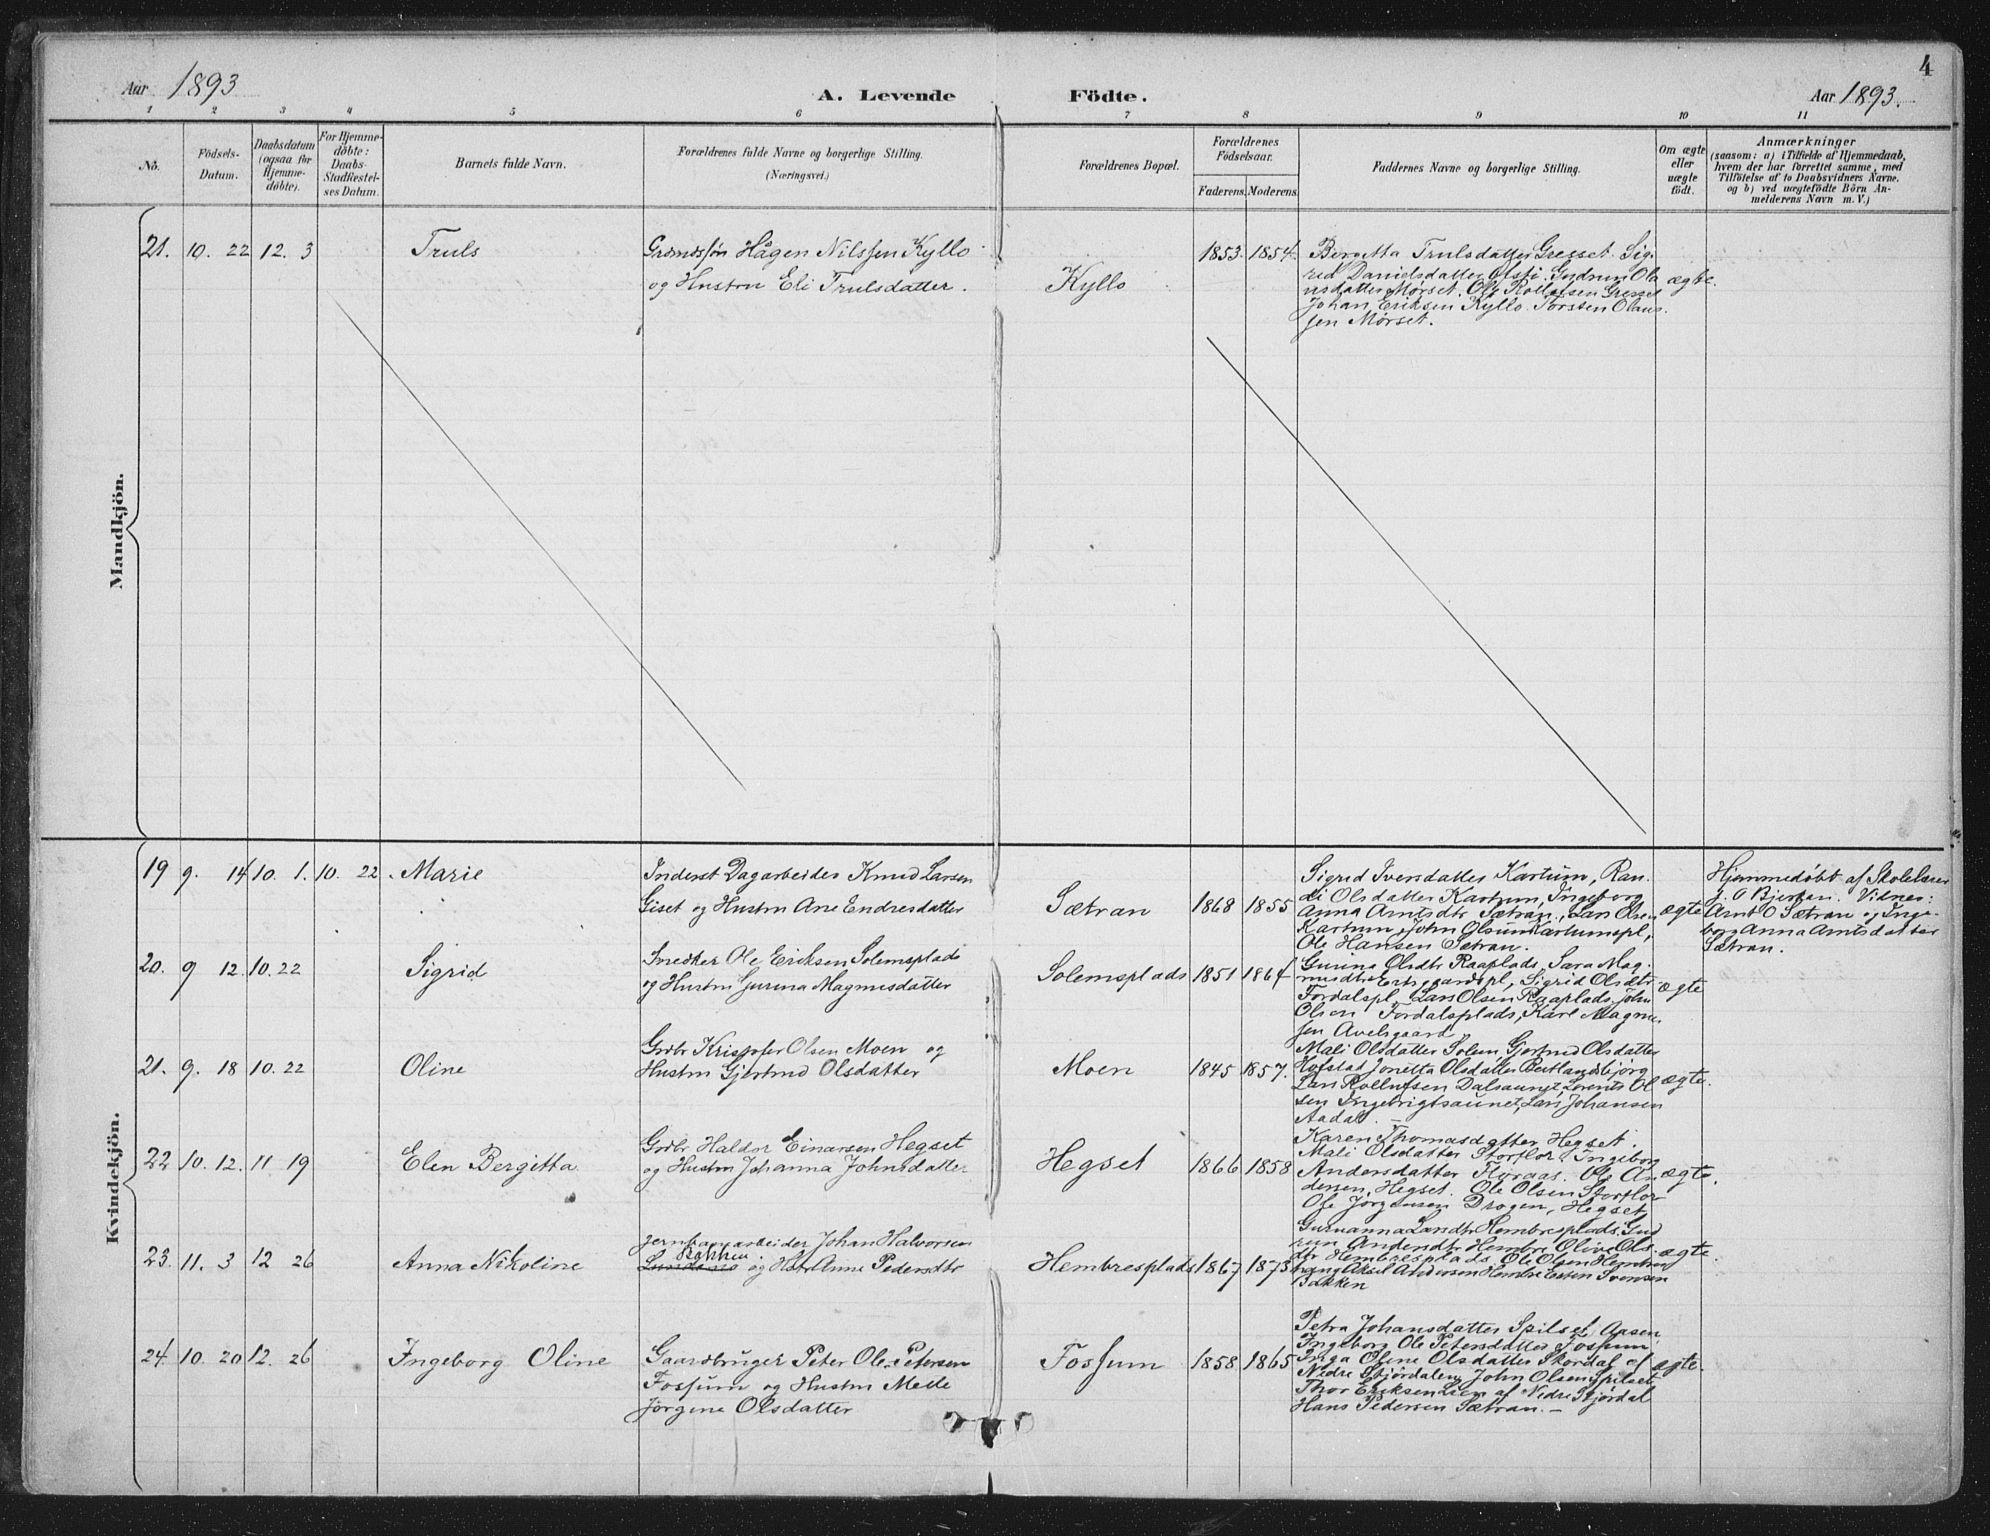 4
Aar 1893
A. Levende Födte.
Aar 1893.
1 2 3 4 5 6 7 8 9 10 11
No.
Födsels-
Datum.
Daabsdatum
(ogsaa for
Hjemme-
döbte).
For Hjemme-
döbte:
Daabs-
Stadfæstel-
ses Datum.
Barnets fulde Navn.
Forældrenes fulde Navne og borgerlige Stilling.
(Næringsvei.)
Forældrenes Bopæl.
Forældrenes
Födselsaar.
Faderens. Moderens.
Faddernes Navne og borgerlige Stilling.
Om ægte
eller
uægte
födt.
Anmærkninger
(saasom: a) i Tilfælde af Hjemmedaab,
hvem der har forrettet samme, med
Tilföielse af to Daabsvidners Navne,
og b) ved uægtefödte Börn An-
melderens Navn m. V.)
Mandkjön.
21. 10. 22 12. 3
Truls
Grdmdssøn Hågen Nilssen Kyllo
og Hustru Eli Trulsdatter.
Kyllo
1853. 1854.
Bergitta Trulsdatter Gresset. Sig-
rid Danielsdatter Olsti. Gudrun Ola
usdatter Mørset. Ole Rollefsen Gresset
Johan Eriksen Kyllo. Torsten Olaus-
sen Mørset.
ægte.
Kvindekjön.
19 9. 14 10. 1. 10. 22.
Marie
Inderst Dagarbeider Knud Larsen
Giset og Hustru Ane Endresdatter
Sætran
1868 1855
Sigrid Iversdatter Kartum, Ran-
di Olsdatter Kartum, Ingeborg
Anna Arntsdtr Sætran, Lars Olsen
Kartum, John Olsen Kartumspl,
Ole Hansen Sætran.
ægte
Hjemmedøbt af Skolelærer
J. O Bjerkan. Vidner:
Arnt O Sætran og Inge-
borg Anna Arntsdatter
Sætran.
20. 9 12. 10. 22
Sigrid
Snedker Ole Eriksen Solemsplads
og Hustru Gurina Magnusdatter
Solemsplads
1851 1864
Gurina Olsdtr Raaplads, Sara Mag-
nusdtr Evensgaardspl, Sigrid Olsdtr
Fordalspl, Lars Olsen Raaplads, John
Olsen Fordalsplads, Karl Magnus-
sen Avelsgaard
ægte
21. 9. 18 10. 22
Oline
Grdbr Kristofer Olsen Moen og
Hustru Gjertrud Olsdatter
Moen
1845 1857.
Mali Olsdatter Solem Gjertrud Olsdatter
Hofstad Jonetta Olsdatter Bertlandsbjörg
Lars Rollefsen Dalsaunet Lorents Ol
sen Ingebrigtsaunet, Lars Johansen
Aadal.
ægte.
22 10. 12. 11 19
Elen Bergitta
Grdbr Haldor Einarsen Hegset
og Hustru Johanna Johnsdatter
Hegset
1866 1858
Karen Thomasdatter Hegset.
Mali Olsdatter Storflor. Ingeborg
Andersdatter Floraas. Ole An
dersen, Hegset. Ole Olsen Storflor
Ole Jörgensen Drogen, Hegset
ægte.
23. 11. 3 12 26
Anna Nikoline
Jernbanearbeider Johan Halvorsen
Bakken.
og Hstr Anne Pedersdtr
Hembresplads
1867 1873
Gurianna Larsdtr Hembresplads. Gud
run Andersdtr Hembre Olive Ols-
dtr Hembresplads, Ole Olsen Hembres
haug Aksel Andersen Hembre Esten Svensen
Bakken
ægte.
24. 10. 20 12. 26
Ingeborg Oline
Gaardbruger Peter Ole Petersen
Fossum og Hustru Mette
Jørgine Olsdatter
Fossum
1858 1865
Petra Johansdatter Spilset, Aasen,
Ingeborg Ole Petersdatter Fossum
Inga Oline Olsdatter Skordal af
Nedre Stjørdalen, John Olsen Spilset
Thor Eriksen Lien af Nedre Stjørdal
Hans Pedersen Sætran. —
ægte.